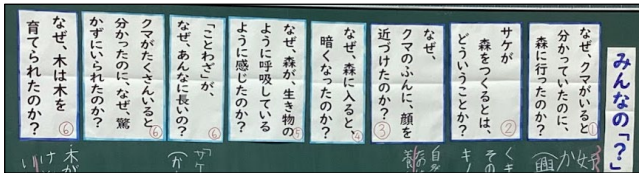 みんなの「?」
なぜ、クマがいると
分かっていたのに、
森に行ったのか?
①
サケが
森をつくるとは、
どういうことか?
②
なぜ、
クマのふんに、顔を
近づけたのか?
③
なぜ、森に入ると、
暗くなったのか?
④
なぜ、森が、生き物の
ように呼吸している
ように感じたのか?
⑤
「ことわざ」が、
なぜ、あんなに長いの?
⑥
クマがたくさんいると
分かったのに、なぜ、驚
かずにいられたのか?
⑥
なぜ、木は木を
育てられたのか?
⑥